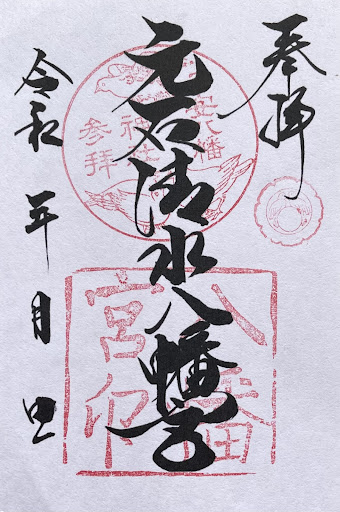 奉拝
元石清水八幡宮
令和 年 月 日
八幡
神社
参拝
八幡
宮印